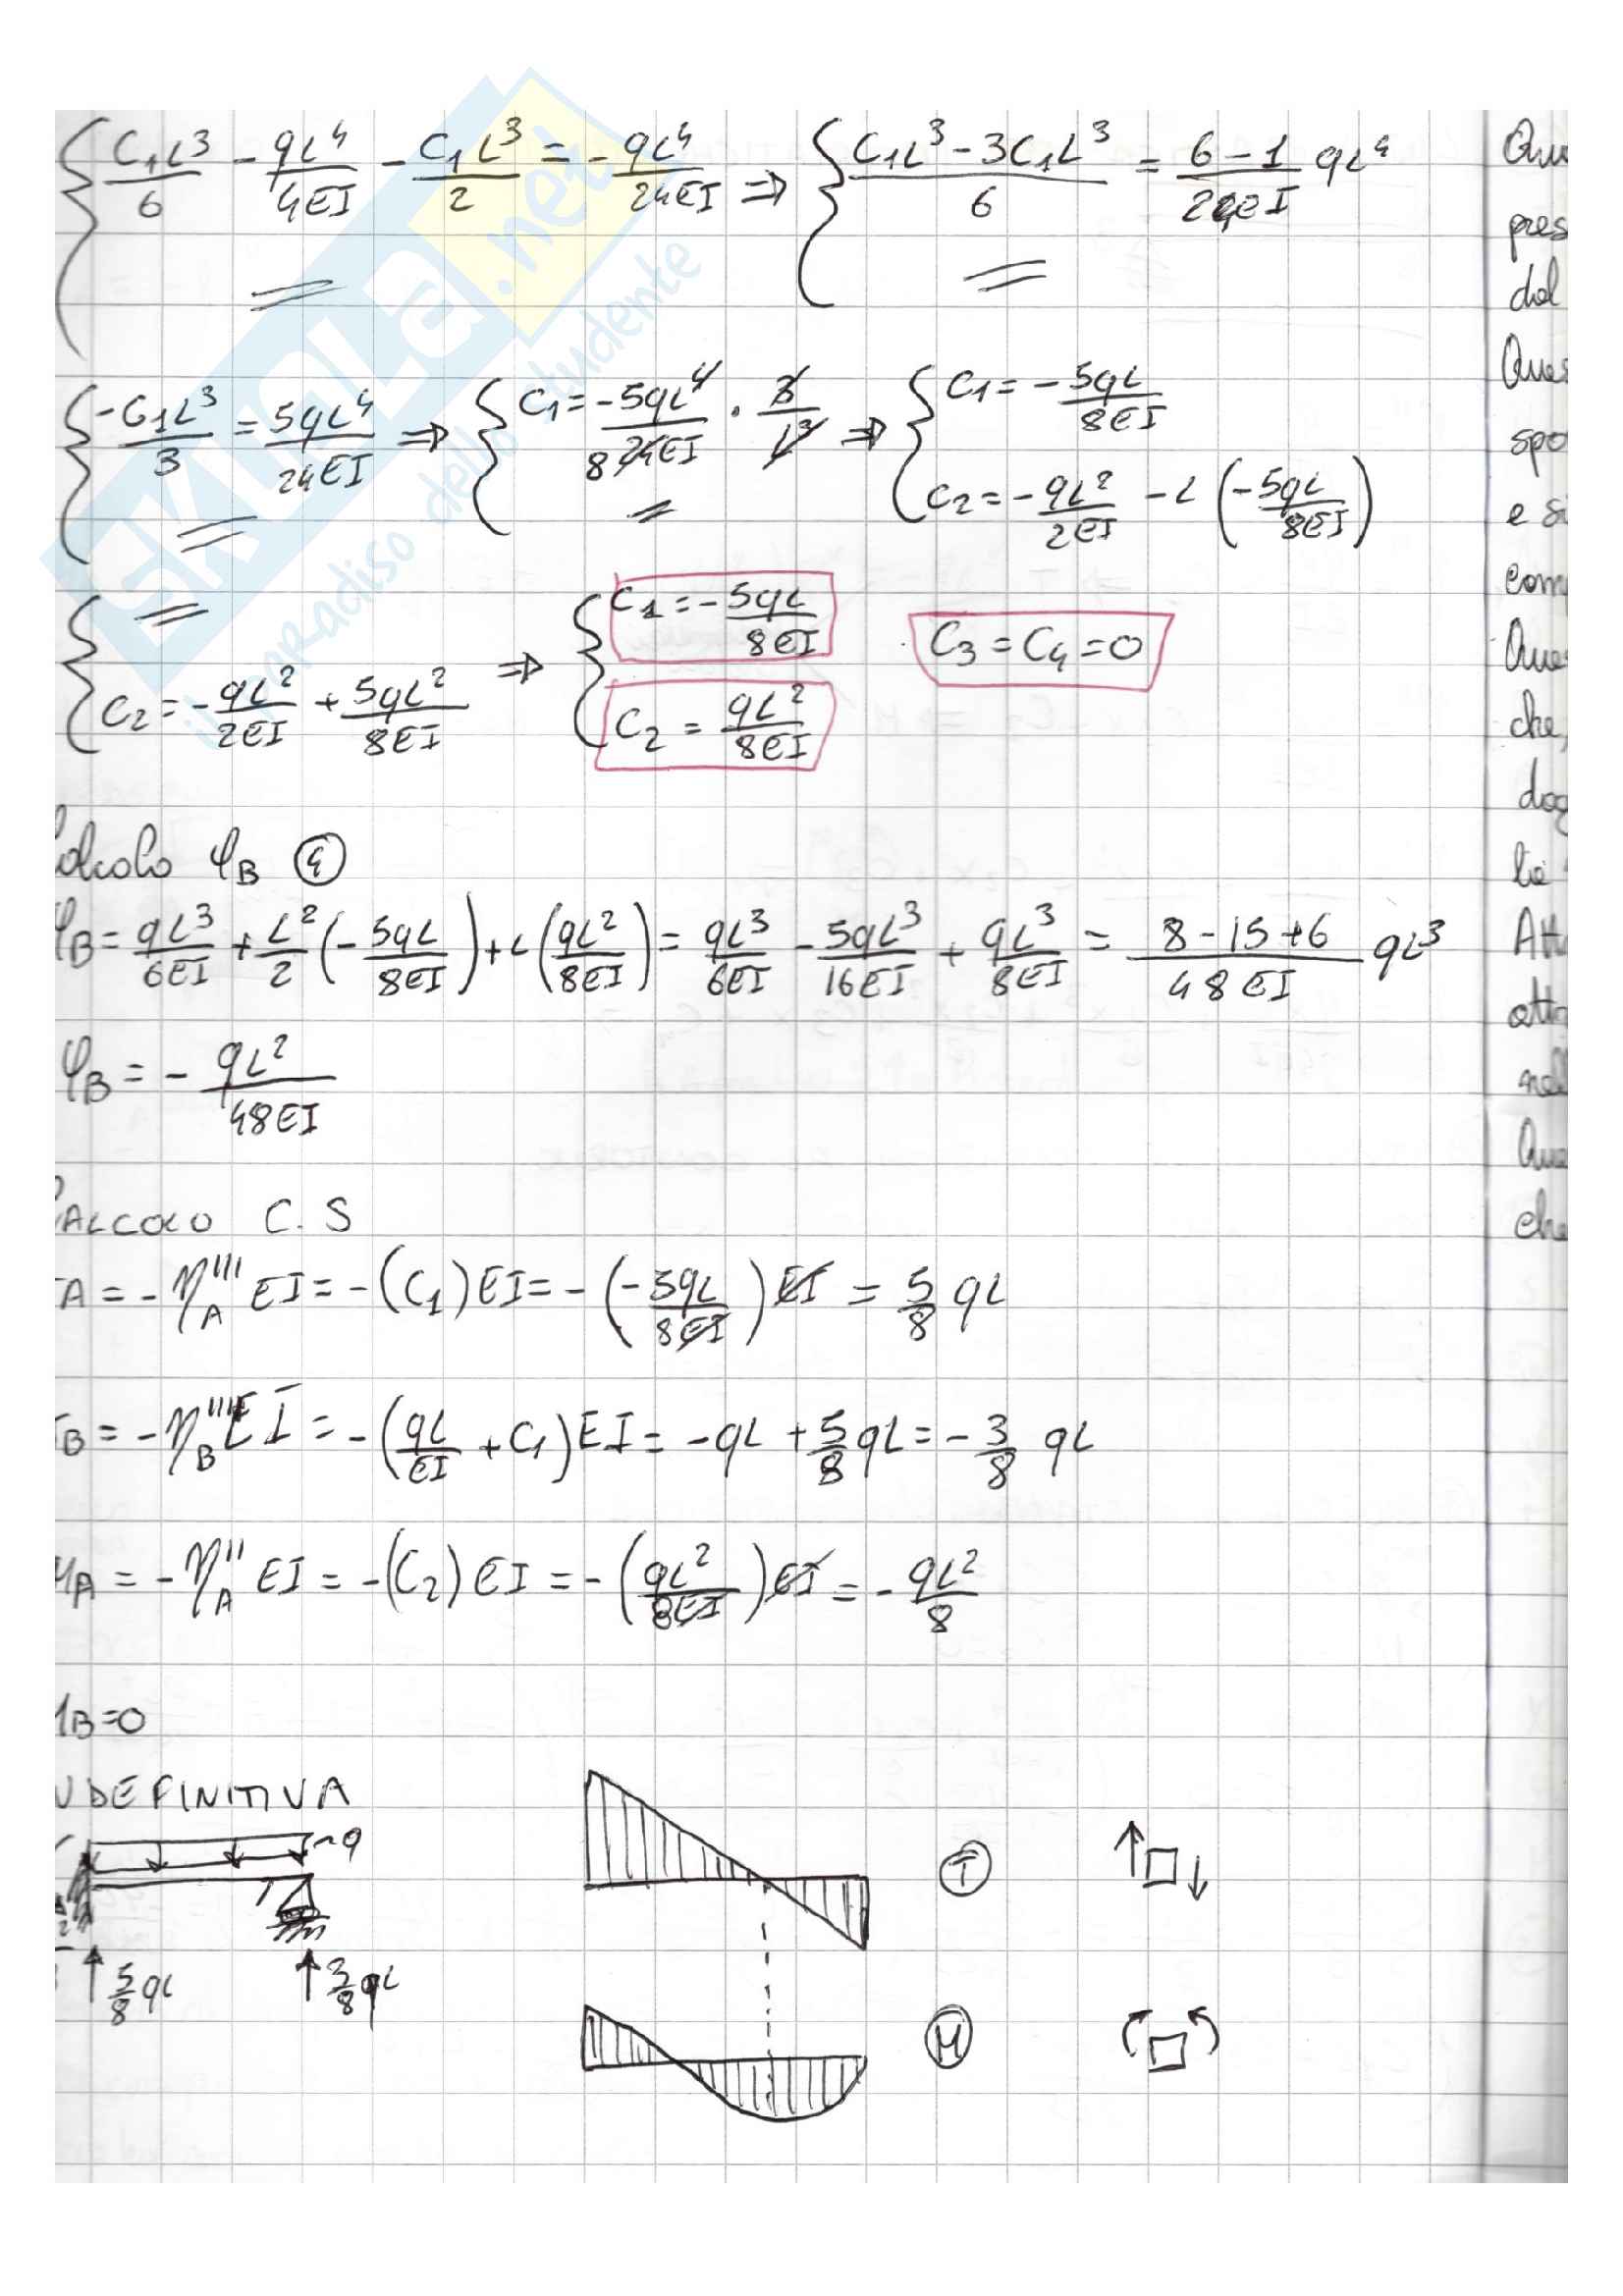 C₁L³/6 - qL⁴/4EI - C₁L³/2 = - qL⁴/24EI ⇒ { (C₁L³ - 3C₁L³)/6 = (6-1)/24EI qL⁴
-C₁L³/3 = 5qL⁴/24EI ⇒ { C₁ = -5qL⁴/24EI · 3/L³ 8 ⇒ { C₁ = -5qL/8EI
C₂ = - qL²/2EI - L (-5qL/8EI)
C₁ = -5qL/8EI
C₃ = C₄ = 0
C₂ = - qL²/2EI + 5qL²/8EI ⇒ { C₂ = qL²/8EI
alcolo φB ④
φB = qL³/6EI + L²/2 (- 5qL/8EI) + L (qL²/8EI) = qL³/6EI - 5qL³/16EI + qL³/8EI = (8 - 15 + 6)/48EI qL³
φB = - qL²/48EI
CALCOLO C.S
A = - η'''A EI = - (C₁) EI = - (-5qL/8EI) EI = 5/8 qL
B = - η'''B EI = - (qL/EI + C₁) EI = - qL + 5/8 qL = - 3/8 qL
MA = - η''A EI = - (C₂) EI = - (qL²/8EI) EI = - qL²/8
MB=0
DEFINITIVA
q
T
5/8 qL
3/8 qL
M
Que
pres
dal
Ques
spo
e si
com
Ques
che,
Que
che
SKUOLA.net
il paradiso dello studente